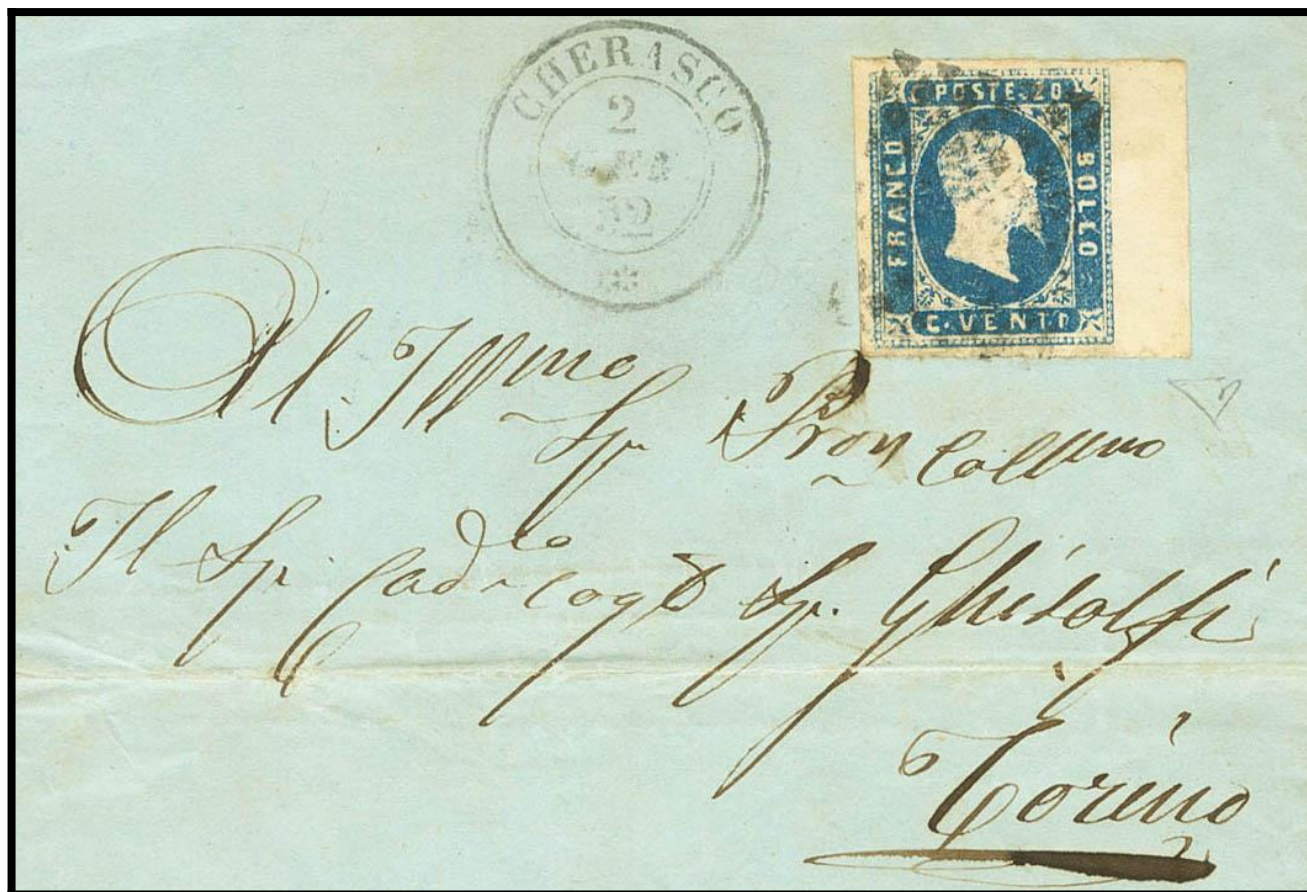 CHERASCO
2
GEN
52
C. POSTE. 20
FRANCO
BOLLO
C. VENTI
Al Illmo
Sr. Pron Collmo
Il Sr. Sr. Ghisolfi
Torino